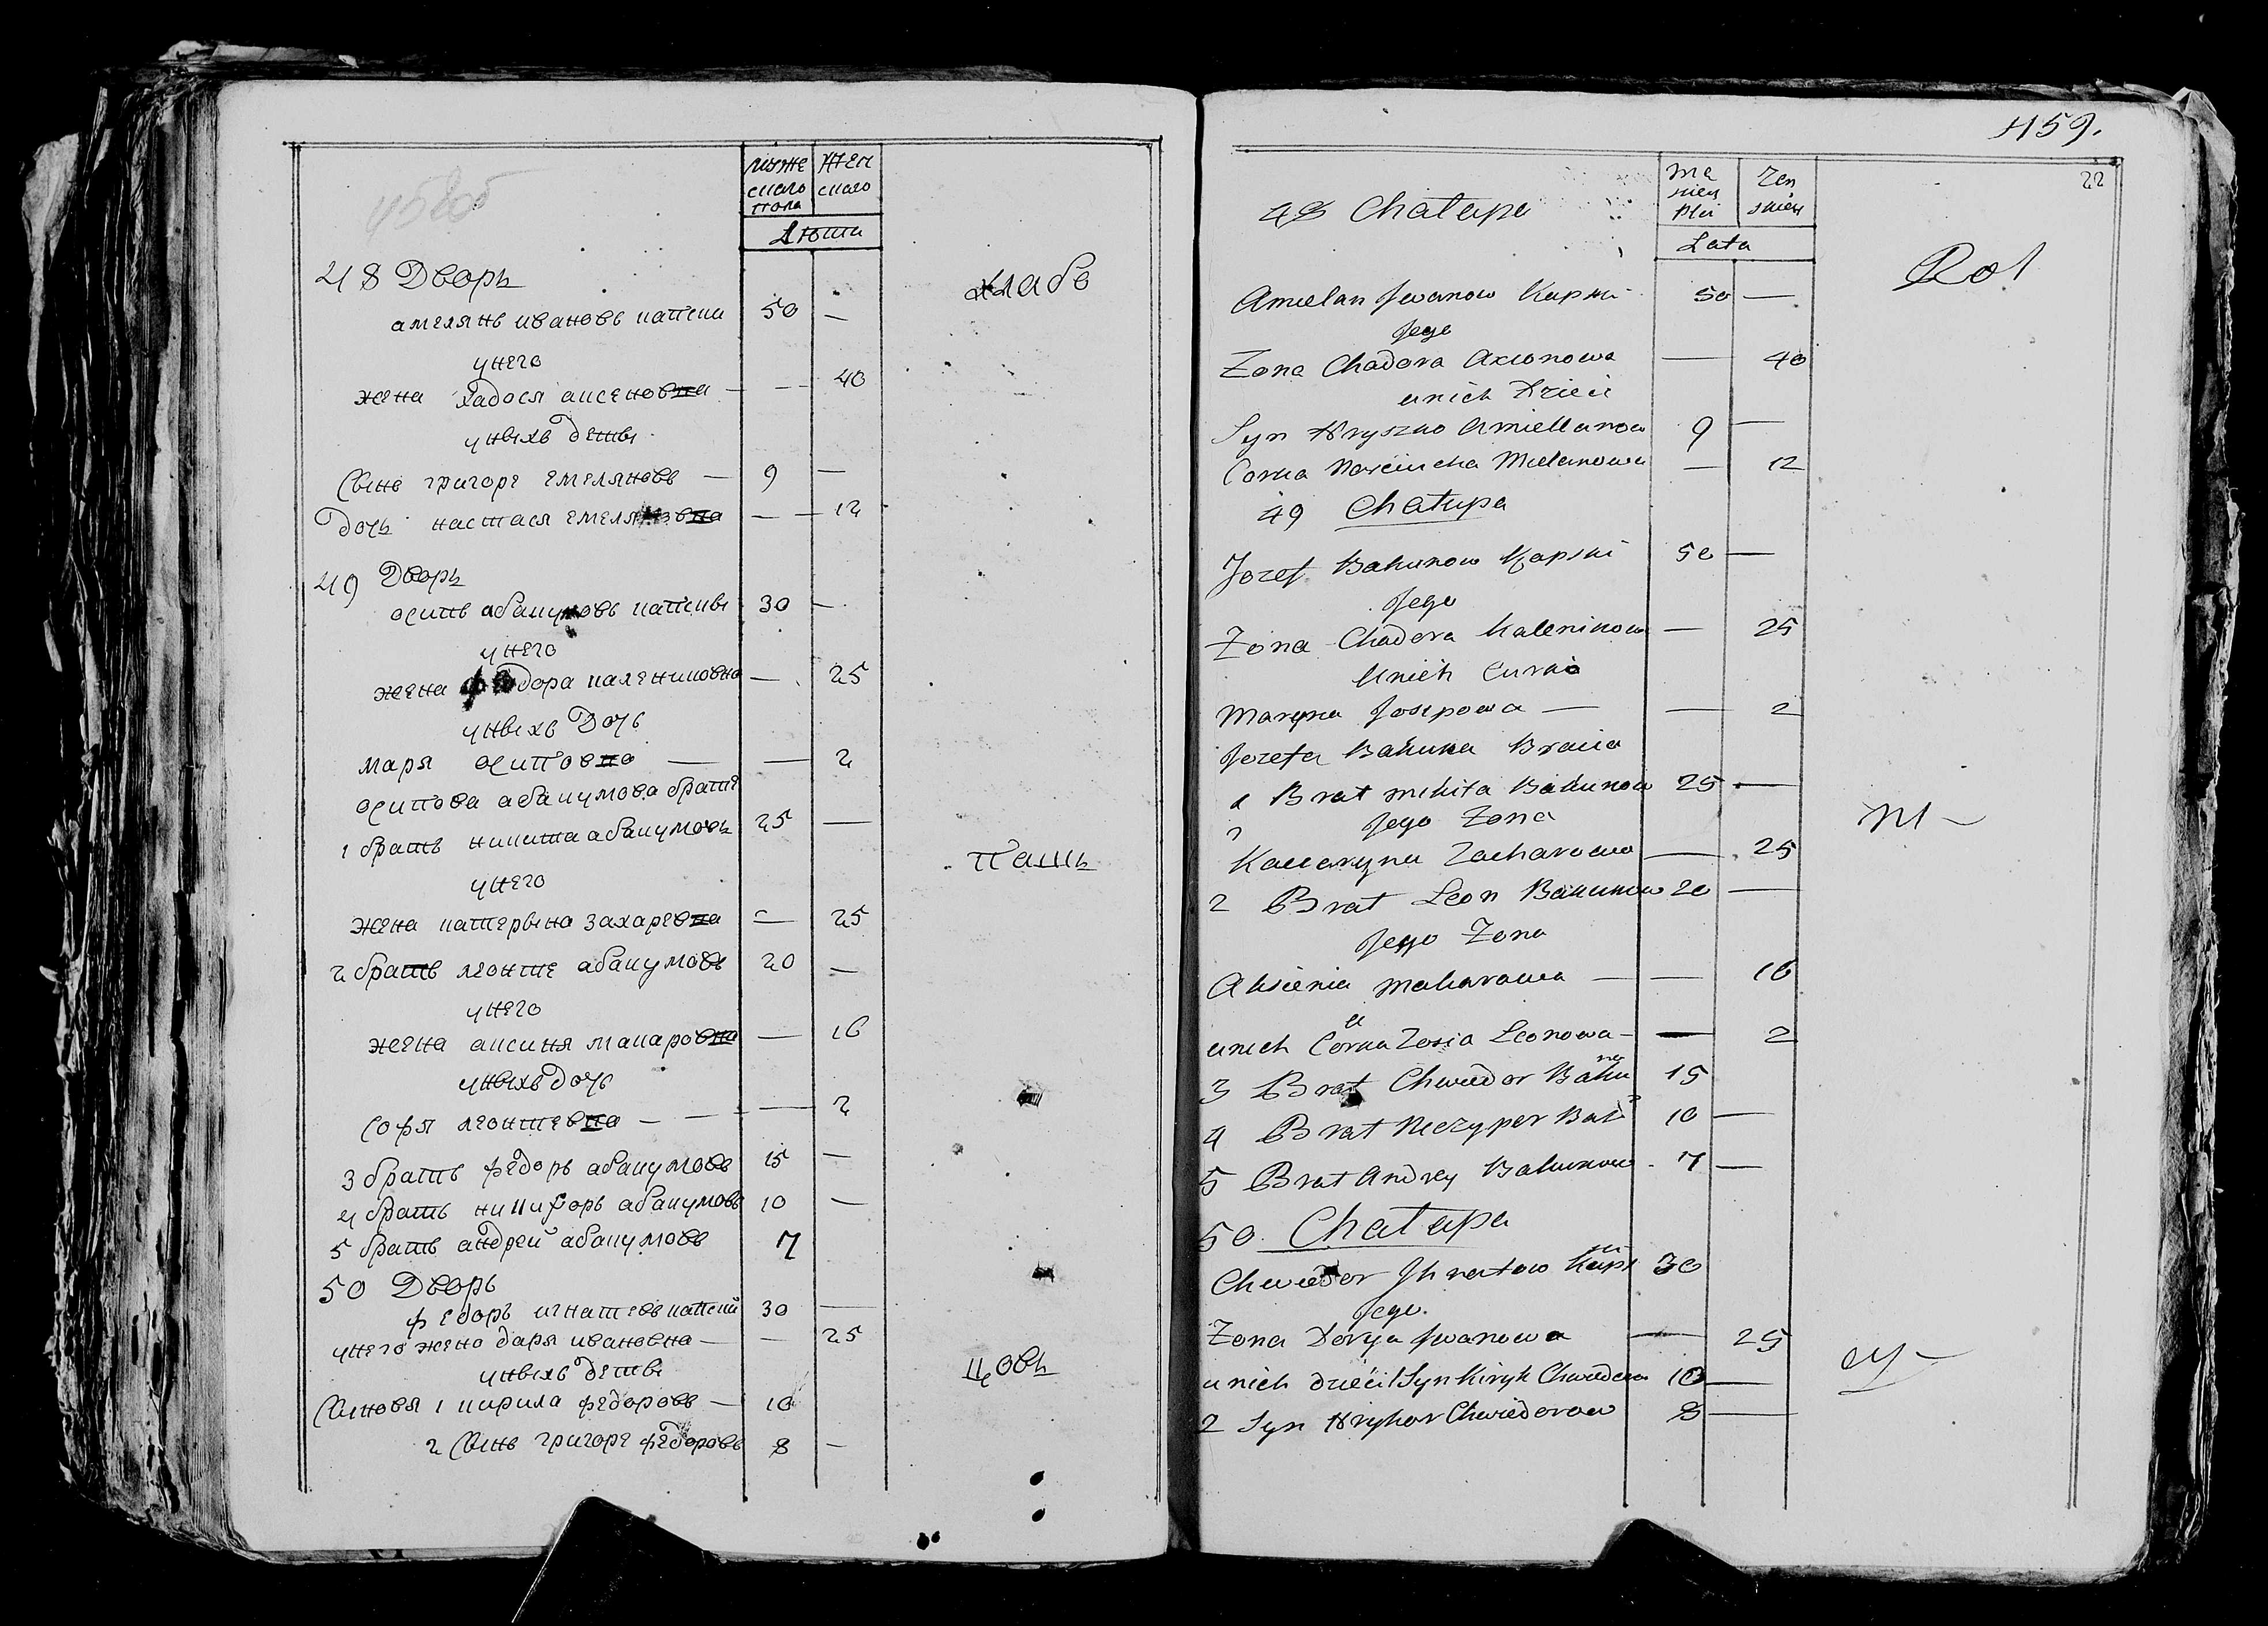 може
скаго
пола
жен
скаго
Лѣта
48 Дворъ
амелянъ ивановъ капски 50 —
унего
жена хадося аксеновна — — 40
унихъ дети
сынъ григоре емеляновъ — 9 —
дочь настася емеляновна — — 12
49 Дворъ
осипъ абакумовъ капскы 30 —
унего
жена федора калениковна — 25
унихъ дочь
маря осиповна — — 2
осипова абакумова братя
1 братъ никита абакумовъ 25 —
унего
жена катерына захаревна — 25
2 братъ леонте абакумовъ 20 —
унего
жена аксиня макаровна — 16
унихъ дочь
софя леонтевна — — 2
3 братъ федоръ абакумовъ 15 —
4 братъ никифоръ абакумовъ 10 —
5 братъ андрей абакумовъ 7
50 Дворъ
федоръ игнатевъ капский 30 —
унего жена даря ивановна — — 25
унихъ дети
сыновя 1 кирила федоровъ — 10
2 сынъ григоре федоровъ 8 —
хлабо
пашь
цовъ
459.
22
48 Chałupa
Lata
Amielan Jwanow Kapski 50 —
Jego
Zona Chadora Axionowa — 40
unich Dzieci
Syn Hryszko Amiellanow 9 —
Corka Nasciucha Mielanowa — 12
49 Chałupa
Jozef Bakunow Kapski 50 —
Jego
Zona Chadora Kalenikowa — 25
Unich Curka
Maryna Josipowa — — 2
Jozefa Bakuna Bracia
1 Brat Mikita Bakunow 25 —
Jego Zona
Kaciaryna Zacharowa — 25
2 Brat Leon Bakunow 20 —
Jego Zona
Aksienia Makarowa — — 16
unich Corka Zosia Leonowa — — 2
3 Brat Chwiedor Bakuno 15
4 Brat Niczyper Bak 10 —
5 Brat Andrey Bakunow 7 —
50. Chałupa
Chwiedor Jhnatow Kapski 30
Jego.
Zona Darya Jwanowa — 25
unich dzieci 1 Syn Kiryk Chwiedorow 10 —
2 Syn Hryhor Chwiedorow 8 —
Rol
ni –
cy –